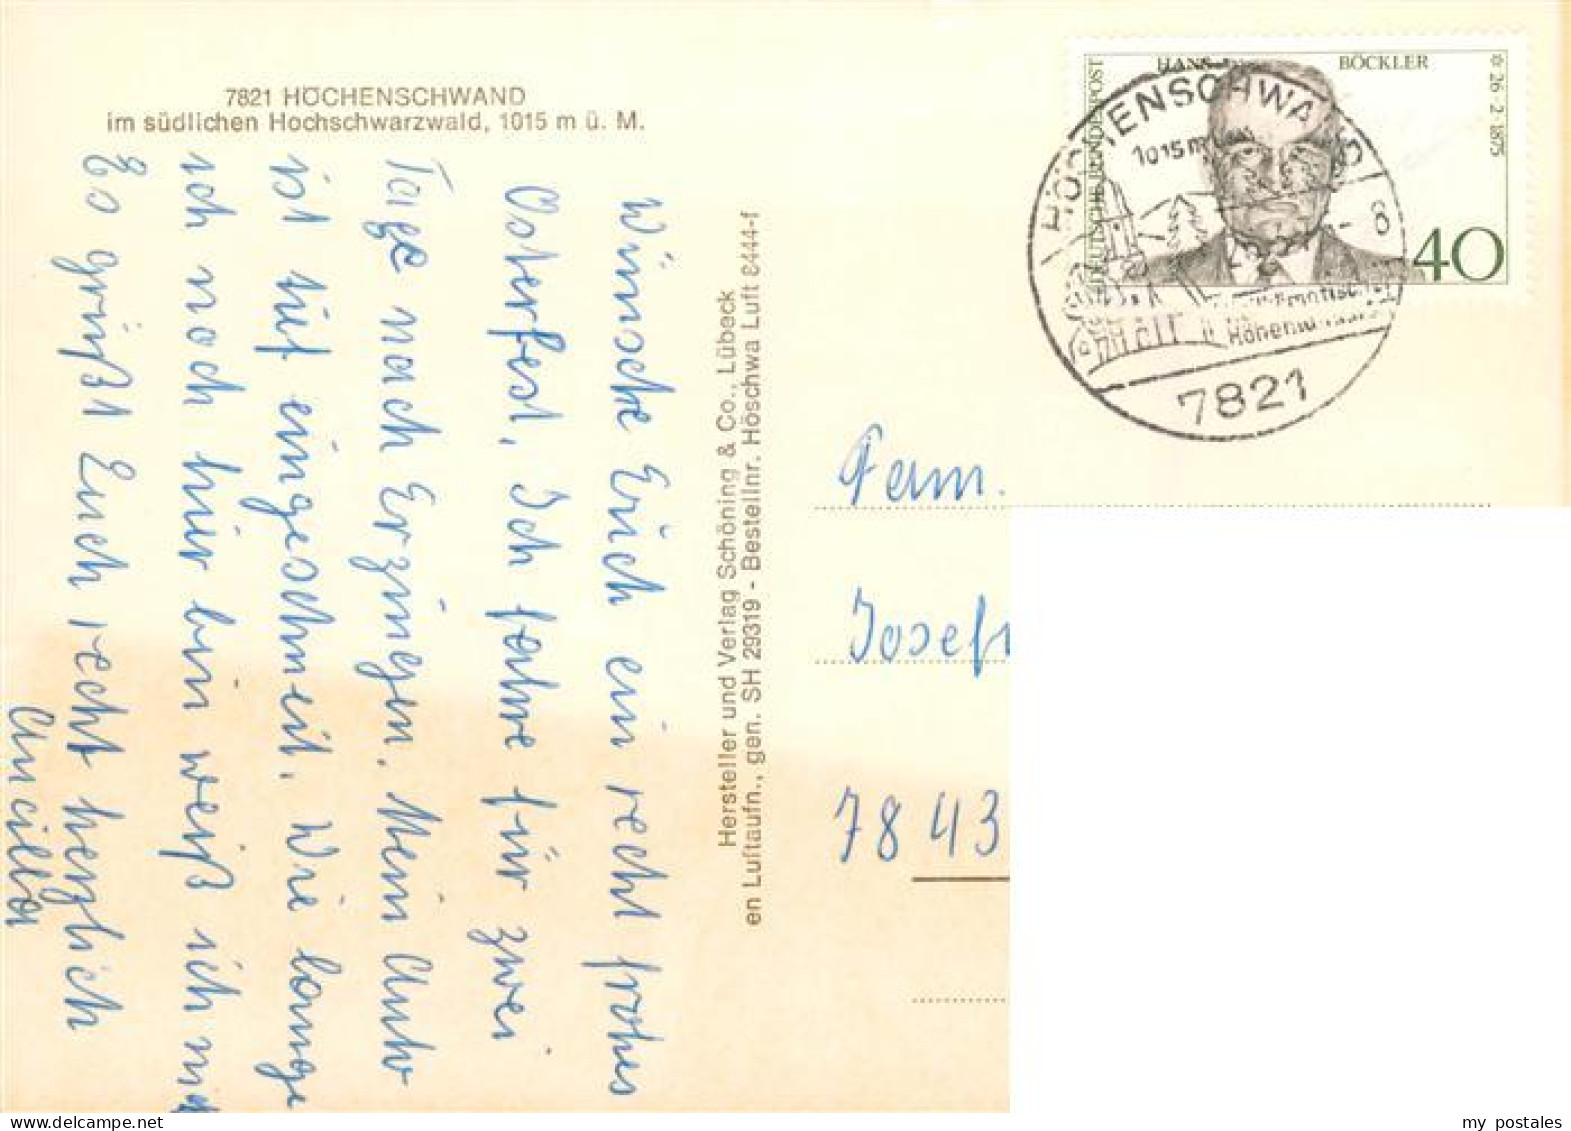 7821 HÖCHENSCHWAND
im südlichen Hochschwarzwald, 1015 m ü. M.
Wünsche Euch ein recht frohes
Osterfest, Ich fahre für zwei
Tage nach Erzingen. Mein Auto
ist tief eingeschneit. Wie lange
ich noch hier bin weiß ich
Es grüßt Euch recht herzlich
Ancilla
Hersteller und Verlag Schöning & Co., Lübeck
en Luftaufn., gen. SH 29319 - Bestellnr. Höschwa Luft 8444-f
HANS BÖCKLER
* 26·2·1875
DEUTSCHE BUNDESPOST
40
HÖCHENSCHWAND
1015 m
8
7821
Fam.
Josef
7843
my_postales